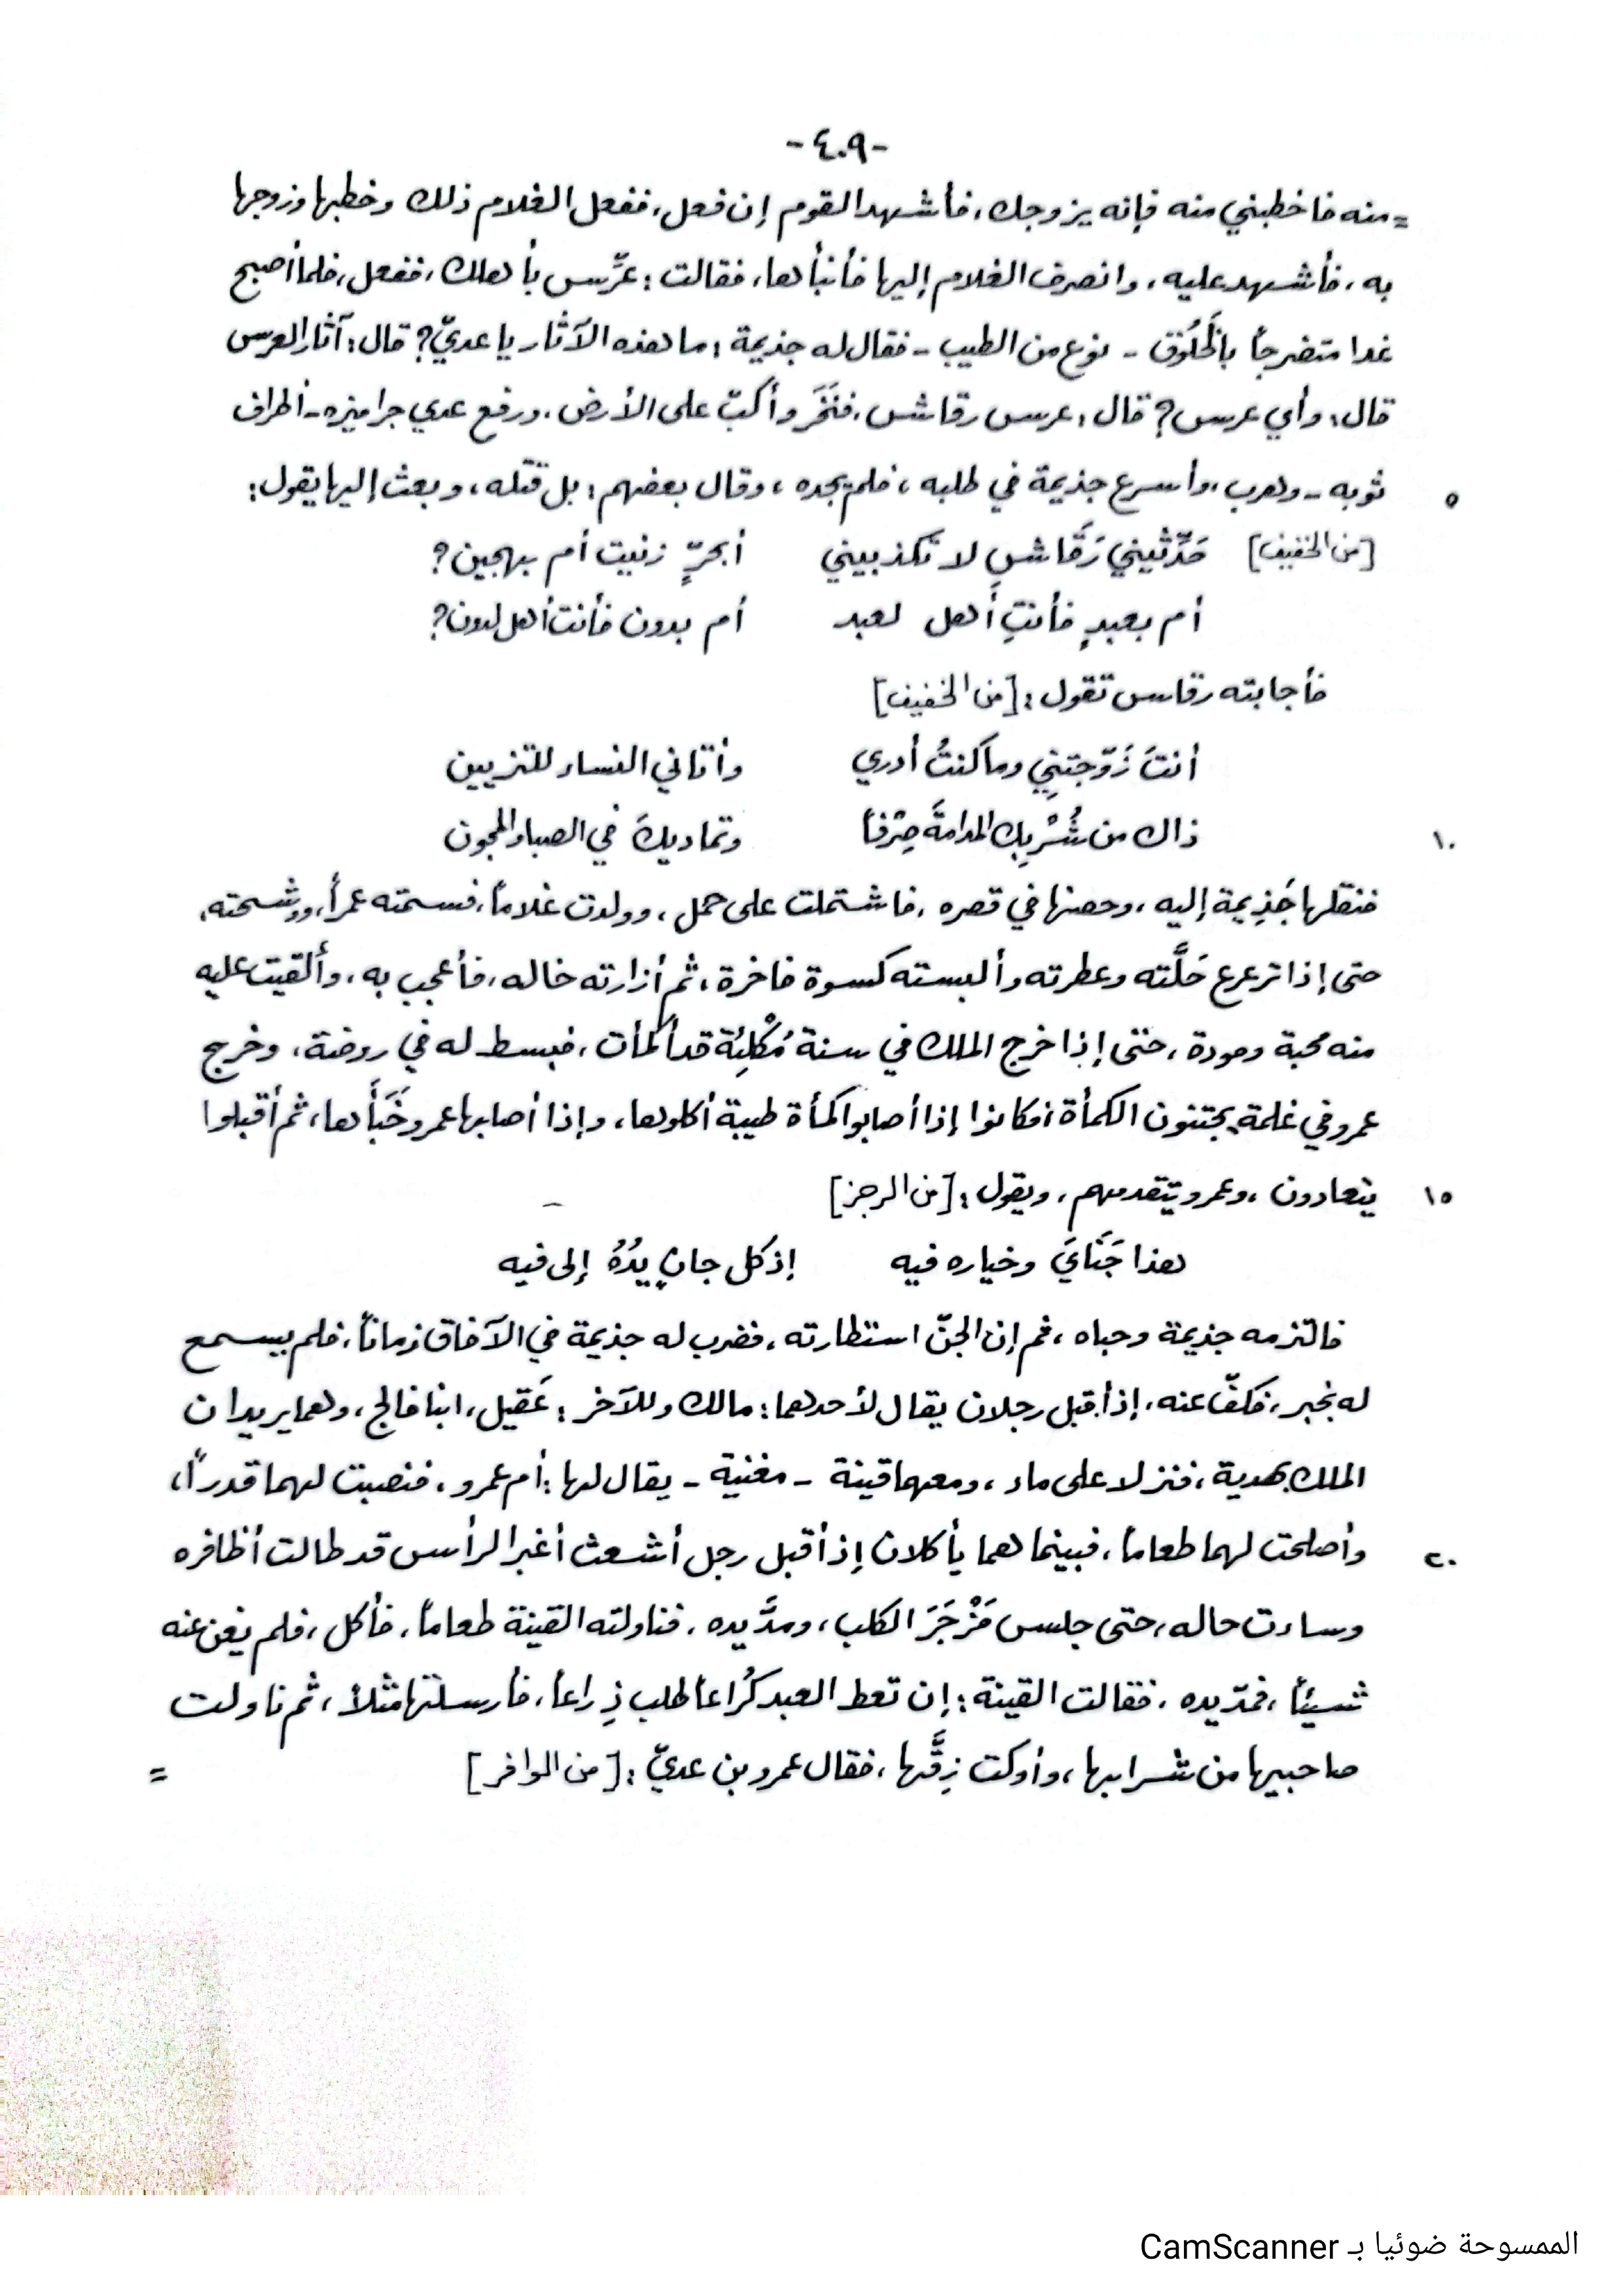 -٤٠٩-
=منه فاخطبني منه فإنه يزوجك، فأشهد القوم إن فعل، ففعل الغلام ذلك وخطبها وزوجها
به، فأشهد عليه، وانصرف الغلام إليها فأنبأها، فقالت: عرِّس بأهلك، ففعل، فلما أصبح
غدا متضرجاً بالخَلُوق - نوع من الطيب - فقال له جذيمة: ما هذه الآثار يا عديّ؟ قال: آثار العرس
قال: وأي عرس؟ قال: عرس رقاش، فنَخَر وأكبّ على الأرض، ورفع عدي جراميزه - أطراف
ثوبه - وهرب، وأسرع جذيمة في طلبه، فلم يجده، وقال بعضهم: بل قتله، وبعث إليها يقول: ٥
[من الخفيف] حَدِّثيني رَقَاشِ لا تكذبيني أبحرٍّ زنيت أم بهجين؟
أم بعبدٍ فأنتِ أَهل لعبد أم بدون فأنت أهل لدون؟
فأجابته رقاس تقول: [من الخفيف]
أنتَ زَوّجتنِي وما كنتُ أدري وأتاني النساء للتزيين
ذاك من شُرْبِك المدامةَ صِرْفاً وتماديكَ في الصبا والمجون ١٠
فنقلها جَذِيمة إليه، وحصنها في قصره، فاشتملت على حمل، وولدت غلاماً، فسمته عمرأ، ورشحته،
حتى إذا ترعرع حَلَّته وعطرته وألبسته كسوة فاخرة، ثم أزارته خاله، فأعجب به، وألقيت عليه
منه محبة ومودة، حتى إذا خرج الملك في سنة مُكْلِئَة قد أكمأت، فبسط له في روضة، وخرج
عمرو في غلمة يجتنون الكمأة، فكانوا إذا أصابوا كمأة طيبة أكلوها، وإذا أصابها عمرو خَبَأَها، ثم أقبلوا
يتعادون، وعمرو يتقدمهم، ويقول: [من الرجز] ١٥
هذا جَنَايَ وخياره فيه إذ كل جانٍ يدُهُ إلى فيه
فالتزمه جذيمة وحباه، ثم إن الجنّ استطارته، فضرب له جذيمة في الآفاق زماناً، فلم يسمع
له بخبر، فكفّ عنه، إذ أقبل رجلان يقال لأحدهما: مالك وللآخر: عَقيل، ابنا فالج، وهما يريدان
الملك بهدية، فنزلا على ماء، ومعهما قينة - مغنية - يقال لها: أم عمرو، فنصبت لهما قدراً،
وأصلحت لهما طعاماً، فبينما هما يأكلان إذ أقبل رجل أشعث أغبر الرأس قد طالت أظافره ٢٠
وساءت حاله، حتى جلس مَزْجَرَ الكلب، ومدَّ يده، فناولته القينة طعاماً، فأكل، فلم يغن عنه
شيئاً، فمدّ يده، فقالت القينة: إن تعط العبد كُراعاً طلب ذِراعاً، فأرسلتها مثلاً، ثم ناولت
صاحبيها من شرابها، وأوكت زِقَّها، فقال عمرو بن عديّ: [من الوافر] =
الممسوحة ضوئيا بـ CamScanner